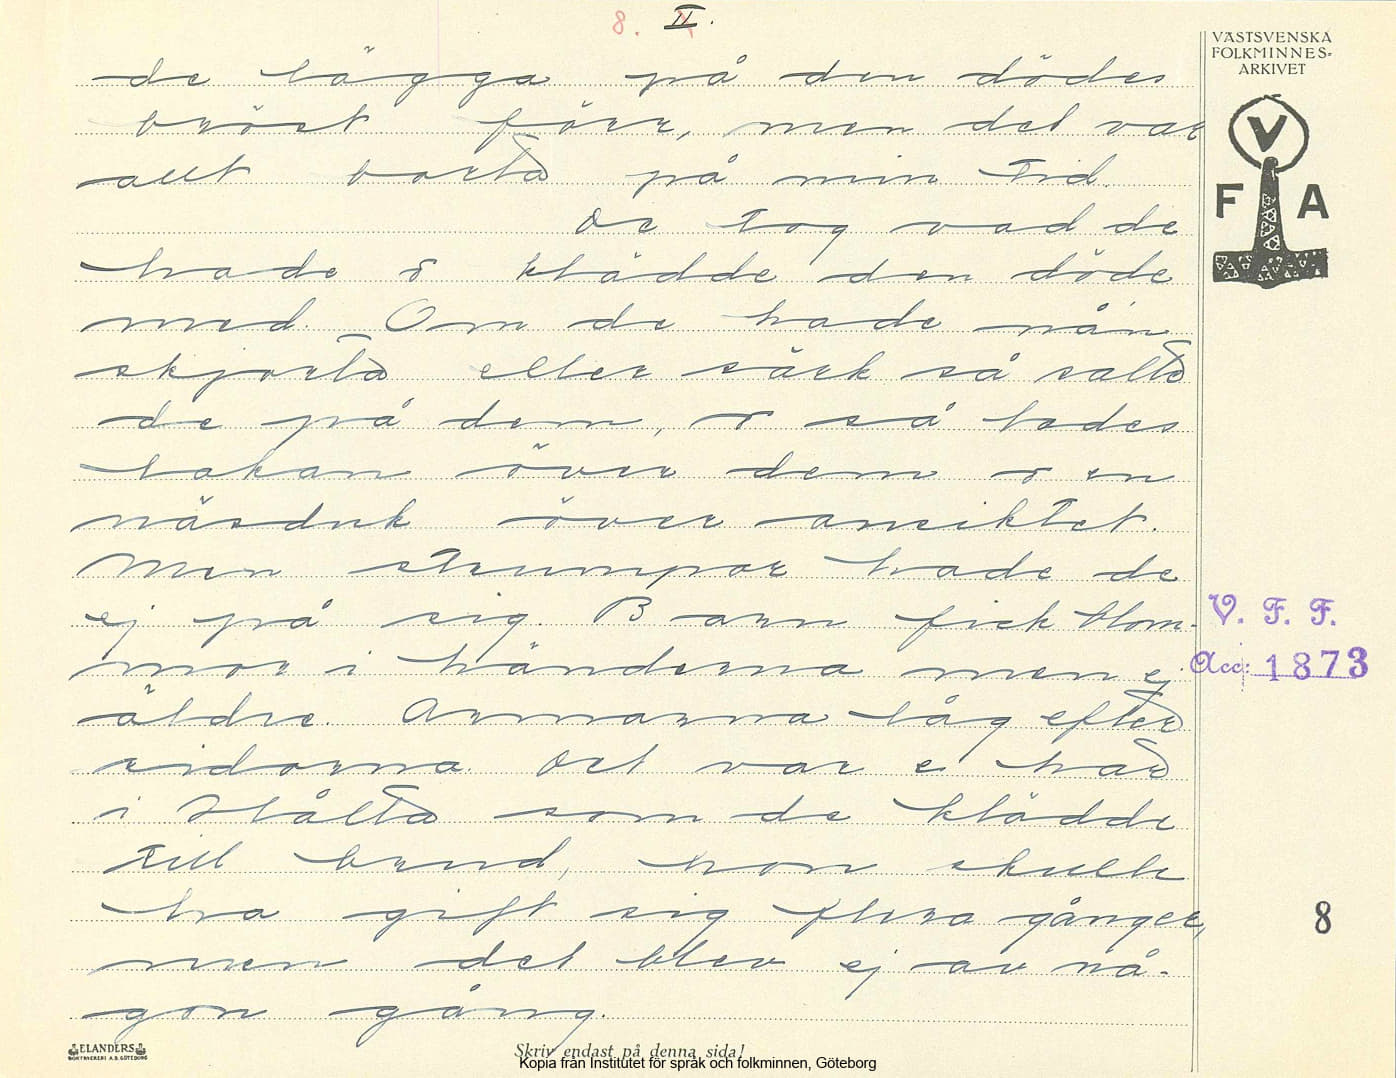 8. II.
VÄSTSVENSKA
FOLKMINNES-
ARKIVET
V
F A
de lägga på den dödes
bröst förr, men det var
allt borta på min tid.
De tog vad de
hade & klädde den döde
med. Om de hade nån
skjorta eller särk så satte
de på dem, & så lades
lakan över dem & en
näsduk över ansiktet.
Men strumpor hade de
ej på sig. Barn fick blom-
mor i händerna men ej
äldre. Armarna låg efter
sidorna. Det var e här
i Hålta som de klädde
till brud, hon skulle
ha gift sig flera gånger,
men det blev ej av nå-
gon gång.
V. F. F.
Acc: 1873
8
ELANDERS
BOKTRYCKERI A.B. GÖTEBORG
Skriv endast på denna sida!
Kopia från Institutet för språk och folkminnen, Göteborg